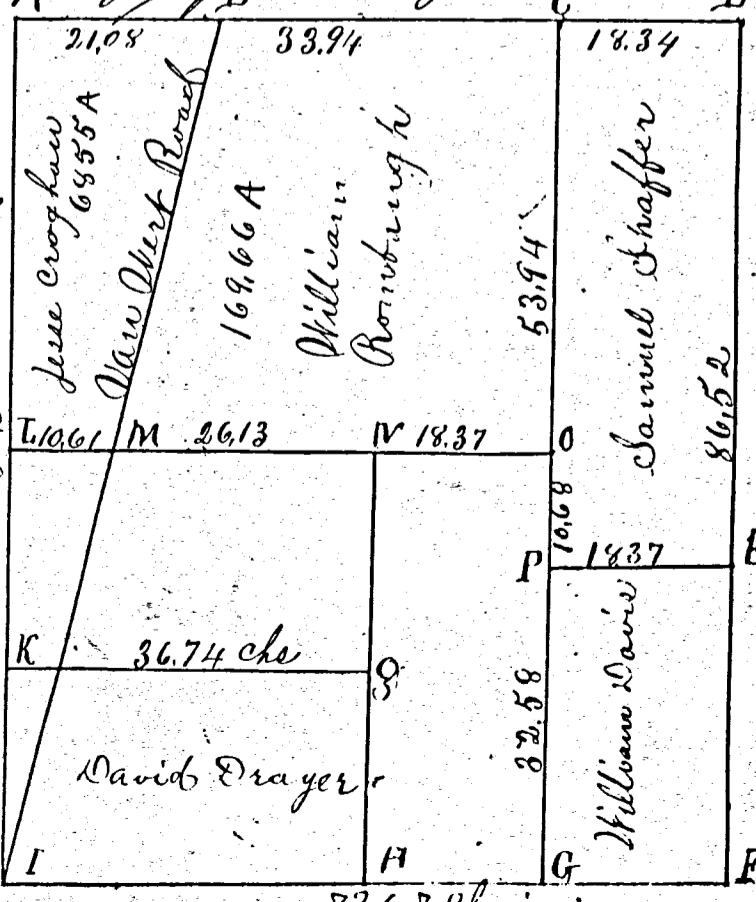 21,08
33.94
18.34
Jesse Croghan
6855 A
Van Wert Road
169,66 A
William
Rombaugh
53,94
Samuel Shaffer
86,52
L 10,61 M 26,13 N 18.37 O
10,68
P 1837 E
K 36.74 chs
32.58
William Davis
David Drayer
I H G F